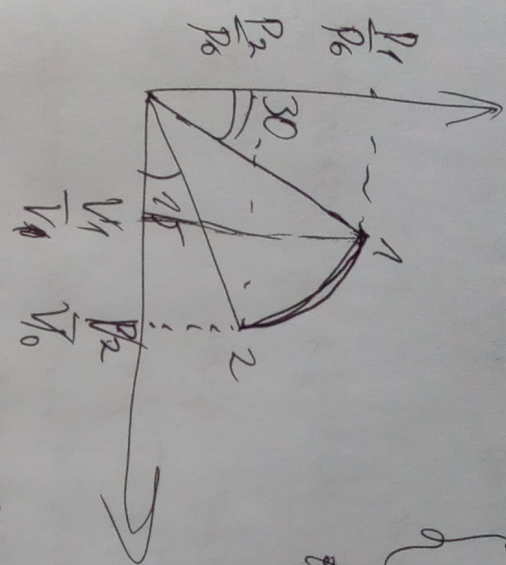 p₁
p₀
p₂
p₀
30
1
15
2
V₁
V₂
V₀